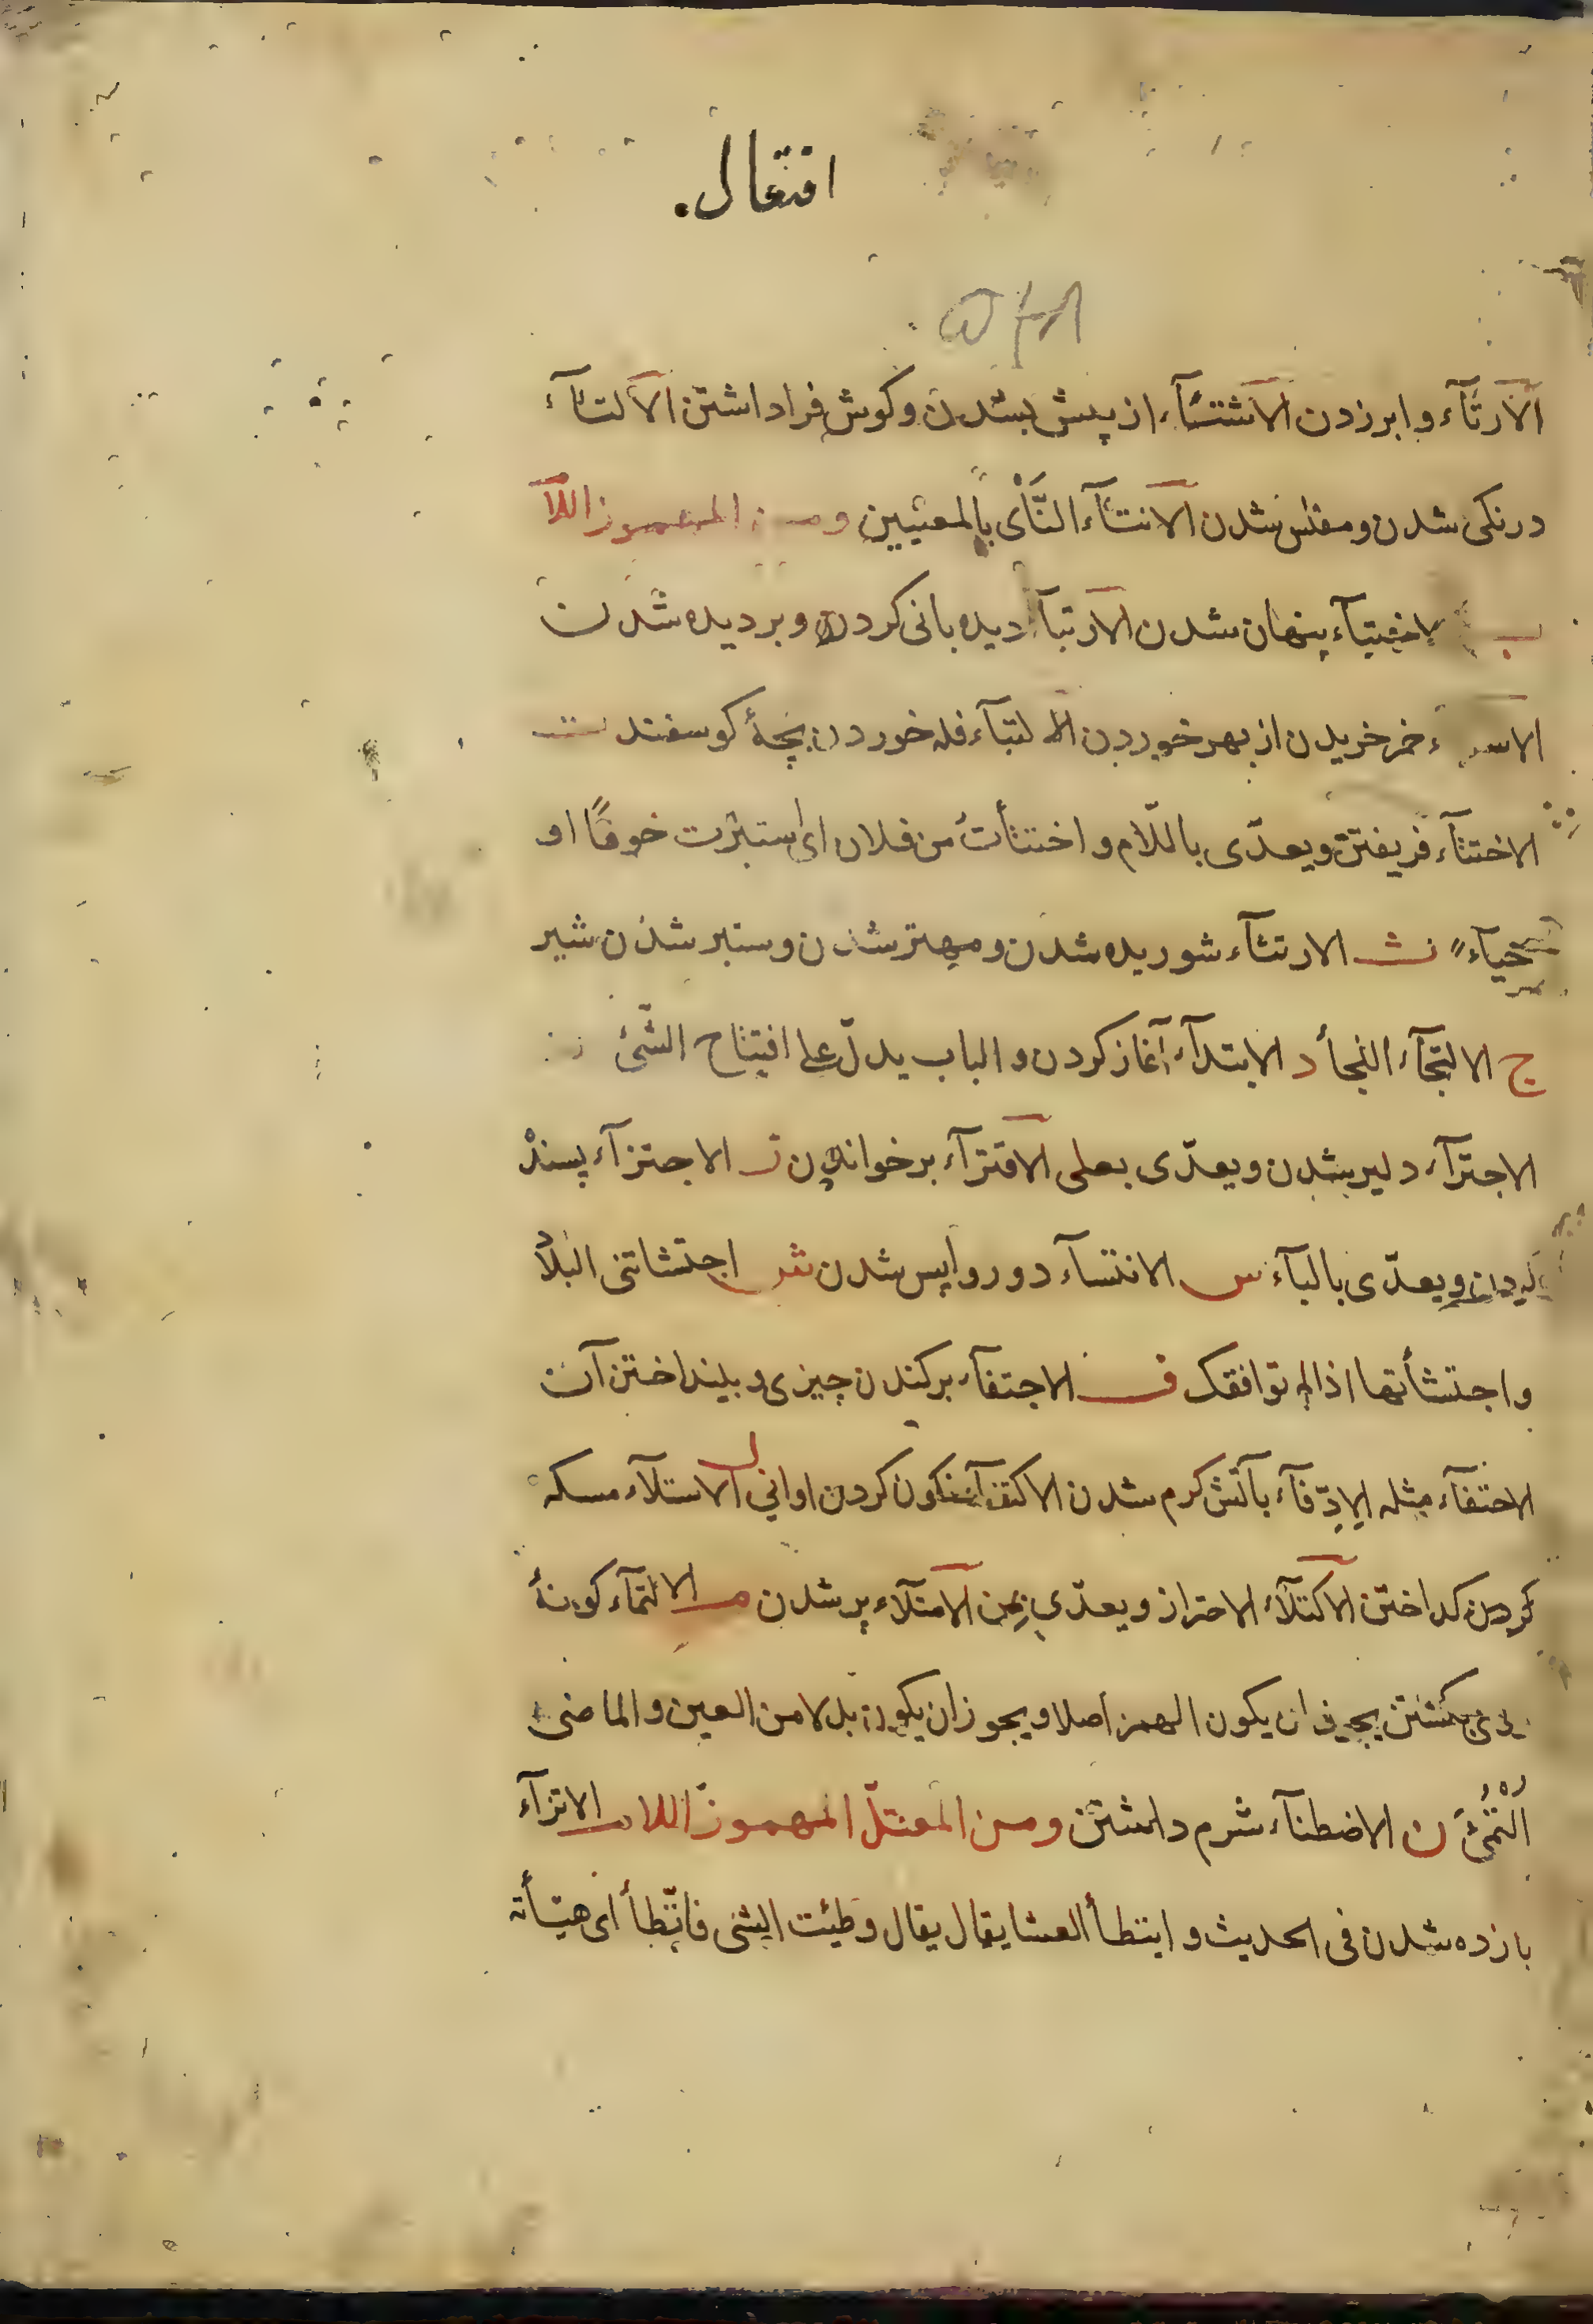 افتعال
الارتآء وابرزدن الاشتئآء از پیش بشدن وکوش فراداشتن الالتئآء
درنکی شدن ومفلس شدن الانتئآء النَّأْی بالمعنیین ومن المهموز اللا
ب الاختبآء پنهان شدن الارتبآء دیده بانی کردن وبر دیده شدن
خمر خریدن از بهر خوردن الالتبآء فله خوردن بچهٔ کوسفند ت
الاختتآء فریفتن ویعدّی باللّام واختتأت من فلان ای استترت خوفًا او
حیآءً ث الارتثآء شوریده شدن ومهتر شدن وستبر شدن شیر
ج الالتجآء اللجأ د الابتدآء آغاز کردن والباب یدلّ علی افتتاح الشّئ
الاجترآء دلیر بشدن ویعدّی بعلی الاقترآء برخواندن ز الاجتزآء پسند
ویعدّی بالبآء س الانتسآء دور واپس شدن ش اجتشاتنی البلاد
واجتشأتها اذا لم توافقک ف الاجتفآء برکندن چیزی وبینداختن آن
الاحتفآء مثله الادّفآء بآتش کرم شدن الاکتفآء نکون کردن اوانی ل الاستلآء مسکه
کردن کداختن الاکتلآء الاحتراز ویعدّی بمن الامتلآء پر شدن م الالتمآء کونهٔ
روی بکشتن یجوز ان یکون الهمز اصلا ویجوز ان یکون بدلا من العین والماضی
اُلْتُمِئَ ن الاضطنآء شرم داشتن ومن المعتلّ المهموز اللام الاتزآء
بازده شدن فی الحدیث وایتطأ العشا یقال یقال وطئت الشئ فاتّطأ ای هیّأته